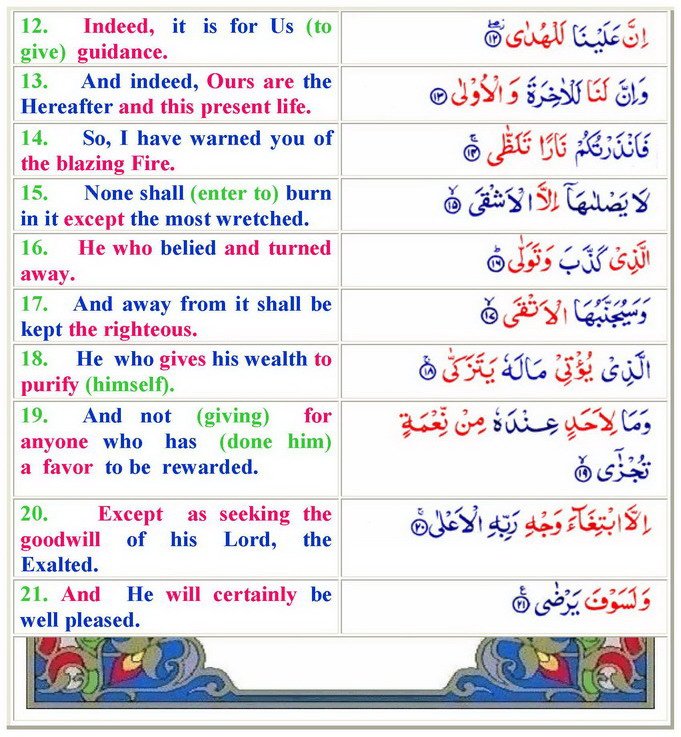 12. Indeed, it is for Us (to
give) guidance.
اِنَّ عَلَيْنَا لَلْهُدٰى ﴿۱۲﴾
13. And indeed, Ours are the
Hereafter and this present life.
وَاِنَّ لَنَا لَلْاٰخِرَةَ وَ الْاُوْلٰى ﴿۱۳﴾
14. So, I have warned you of
the blazing Fire.
فَاَنْذَرْتُكُمْ نَارًا تَلَظّٰى ﴿۱۴﴾
15. None shall (enter to) burn
in it except the most wretched.
لَا يَصْلٰىهَاۤ اِلَّا الْاَشْقَى ﴿۱۵﴾
16. He who belied and turned
away.
الَّذِىْ كَذَّبَ وَتَوَلّٰى ﴿۱۶﴾
17. And away from it shall be
kept the righteous.
وَسَيُجَنَّبُهَا الْاَتْقَى ﴿۱۷﴾
18. He who gives his wealth to
purify (himself).
الَّذِىْ يُؤْتِىْ مَالَهٗ يَتَزَكّٰى ﴿۱۸﴾
19. And not (giving) for
anyone who has (done him)
a favor to be rewarded.
وَمَا لِاَحَدٍ عِنْدَهٗ مِنْ نِّعْمَةٍ
تُجْزٰۤى ﴿۱۹﴾
20. Except as seeking the
goodwill of his Lord, the
Exalted.
اِلَّا ابْتِغَآءَ وَجْهِ رَبِّهِ الْاَعْلٰى ﴿۲۰﴾
21. And He will certainly be
well pleased.
وَلَسَوْفَ يَرْضٰى ﴿۲۱﴾